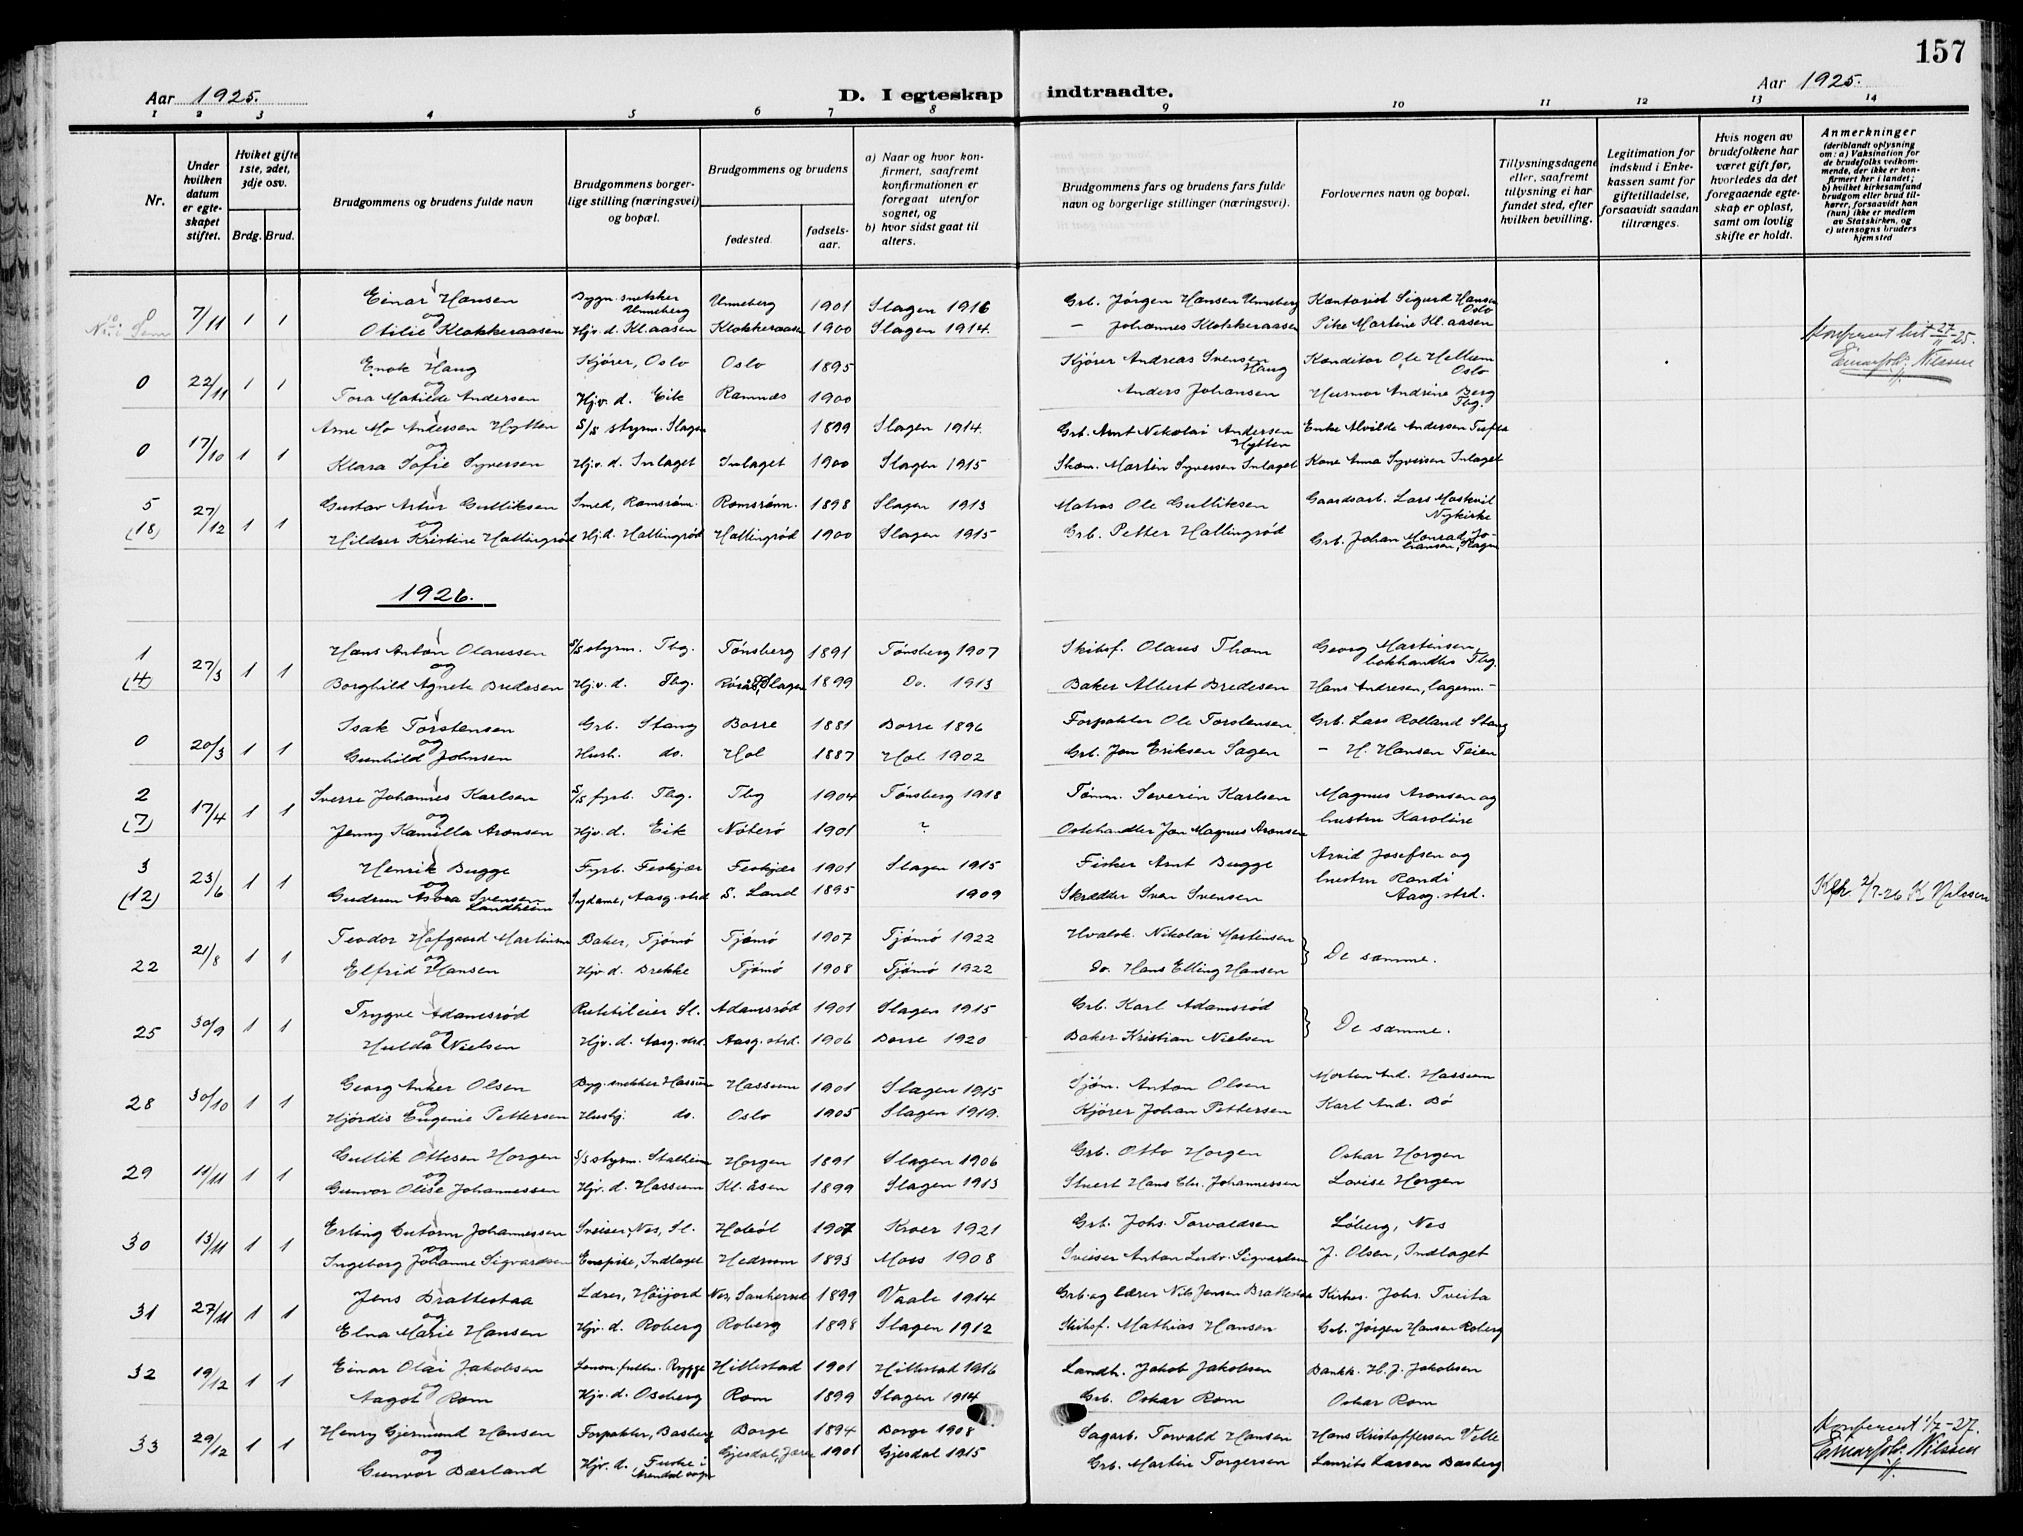 157
Aar 1925. D. I egteskap indtraadte. Aar 1925.
1 2 3 4 5 6 7 8 9 10 11 12 13 14
Nr.
Under hvilken datum er egteskapet stiftet.
Hviket gifte 1ste, 2det, 3dje osv.
Brdg. Brud.
Brudgommens og brudens fulde navn
Brudgommens borgerlige stilling (næringsvei) og bopæl.
Brudgommens og brudens
fødested. fødselsaar.
a) Naar og hvor konfirmert, saafremt konfirmationen er foregaat utenfor sognet, og
b) hvor sidst gaat til alters.
Brudgommens fars og brudens fars fulde navn og borgerlige stillinger (næringsvei).
Forlovernes navn og bopæl.
Tillysningsdagene eller, saafremt tillysning ei har fundet sted, efter hvilken bevilling.
Legitimation for indskud i Enkekassen samt for giftetilladelse, forsaavidt saadan tiltrænges.
Hvis nogen av brudefolkene har været gift før, hvorledes da det foregaaende egteskap er opløst, samt om lovlig skifte er holdt.
Anmerkninger (deriblandt oplysning om: a) Vaksination for de brudefolks vedkommende, der ikke er konfirmert her i landet; b) hvilket kirkesamfund brudgom eller brud tilhører, forsaavidt han (hun) ikke er medlem av Statskirken, og c) utensogns bruders hjemsted
0 7/11 1 1 Einar Hansen Bygn. snekker Unneberg Unneberg 1901 Slagen 1916 Grb. Jørgen Hansen Unneberg Kontorist Sigurd Hansen Oslo
og
Otilie Klokkeraasen Hjv. d. Kl. aasen Klokkeraasen 1900 Slagen 1914. — Johannes Klokkeraasen Pike Martine Kl. aasen Konferert hit 27/11-25.
Einar Joh. Nilssen
0 22/11 1 1 Enok Haug Kjører, Oslo Oslo 1895 Kjører Andreas Svensen Haug Konditor Ole Hellum Oslo
og
Tora Matilde Andersen Hjv. d. Eik Ramnes 1900 Anders Johansen Husmor Andrine Berg Tbg.
0 17/10 1 1 Arne Mo Andersen Hytten S/S styrm. Slagen 1899 Slagen 1914. Grb. Arnt Nikolai Andersen Hytten Enke Alvilde Andersen
og
Klara Sofie Syversen Hjv. d. Inlaget Inlaget 1900 Slagen 1915 Skom. Martin Syversen Inlaget Kone Anna Syversen Inlaget
5 (18) 27/12 1 1 Gustav Artur Gulliksen Smed, Ramsrøm. Ramsrøm. 1898 Slagen 1913 Matros Ole Gulliksen Gaardsarb. Lars Moskvil Nykirke
og
Hildur Kristine Hallingrød Hj.d. Hallingrød Hallingrød 1900 Slagen 1915 Grb. Petter Hallingrød Grb. Johan Monrad Johansen, Slagen
1926.
1 (4) 27/3 1 1 Hans Anton Olaussen S/S styrm. Tbg. Tønsberg 1891 Tønsberg 1907 Skibsf. Olaus Thom Georg Martinsen, bokhandler Tbg.
og
Borghild Agnete Bredesen Hjv. d. Tbg. Slagen 1899 Do. 1913 Baker Albert Bredesen Hans Andresen, lagerm. —
0 20/3 1 1 Isak Torstensen Grb. Stang Borre 1881 Borre 1896 Forpakter Ole Torstensen Grb. Lars Rolland Stang
og
Gunhild Johnsen Hush. do. Hol 1887 Hol 1902 Grb. Jon Eriksen Sagen — H. Hansen Teien
2 (7) 17/4 1 1 Sverre Johannes Karlsen S/S fyrb. Tbg. Tbg 1904 Tønsberg 1918 Tømm. Severin Karlsen Magnus Aronsen og
og
Jenny Kamilla Aronsen Hjv. d. Eik Nøterø 1901 ? Ostehandler Jon Magnus Aronsen hustru Karoline
3 (12) 23/6 1 1 Henrik Bugge Fyrb. Feskjær Feskjær 1901 Slagen 1915 Fisker Arnt Bugge Arvid Josefsen og
og
Gudrun Asora Svensen Landheim Sydame, Aasg. strd S. Land 1895 1909 Skrædder Sven Svensen hustru Randi Aasg. strd. Kfr 2/7-26 K Nilssen
22 21/8 1 1 Teodor Hofgaard Martinsen Baker, Tjømø Tjømø 1907 Tjømø 1922 Hvalsk. Nikolai Martinsen
og De samme.
Elfrid Hansen Hjv. d. Brekke Tjømø 1908 Tjømø 1922 Do. Hans Elling Hansen
25 30/9 1 1 Trygve Adamsrød Rutebileier Sl. Adamsrød 1901 Slagen 1915 Grb. Karl Adamsrød
og De samme.
Hulda Nielsen Hjv. d. Aasg. strd. Aasg. strd. 1906 Borre 1920 Baker Kristian Nielsen
28 30/10 1 1 Georg Anker Olsen Byg. snekker Hassum Hassum 1901 Slagen 1915 Sjøm. Anton Olsen Morten And. Hassum
og
Hjørdis Eugenie Pettersen Husbj. do. Oslo 1905 Slagen 1919. Kjører Johan Pettersen Karl And. Bø
29 11/11 1 1 Gullik Ottesen Horgen S/S styrm. Stalheim Horgen 1891 Slagen 1906 Grb. Otto Horgen Oskar Horgen
og
Gunvor Olise Johannessen Hjv. d. Hassum Kl. åsen 1899 Slagen 1913 Stuert Hans Chr. Johannessen Lovise Horgen
30 13/11 1 1 Erling Gutorm Johannessen Sveiser, Nes, Sl. Hobøl 1907 Kroer 1921 Grb. Johs. Torvaldsen Løberg, Nes
og
Ingeborg Johanne Sigvardsen Enepike, Indlaget Hedrum 1893 Moss 1908 Sveiser Anton Ludv. Sigvardsen J. Olsen, Indlaget
31 27/11 1 1 Jens Brattestaa Lærer, Høijord Nes, Sauherred 1899 Vaale 1914 Grb. og lærer Nils Jensen Brattestaa Kirkes. Johs. Tveita
og
Elna Marie Hansen Hjv. d. Roberg Roberg 1898 Slagen 1912 Skibsf. Mathias Hansen Grb. Jørgen Hansen Roberg
32 19/12 1 1 Einar Olai Jakobsen Rygge Hillestad 1901 Hillestad 1916 Landh. Jakob Jakobsen Bankk. H. J. Jakobsen
og
Aagot Rom Hjv. d. Oseberg Rom 1899 Slagen 1914 Grb. Oskar Rom Oskar Rom
33 29/12 1 1 Henry Gjermund Hansen Forpakter, Basberg Borge 1894 Borge 1908 Sagarb. Torvald Hansen Hans Kristoffersen Velle Konferert 1/2-27.
og
Gunvor Bærland Hjv. d. Gjesdal, Jæren 1901 Gjesdal 1915 Grb. Martin Torgersen Laurits Larsen Basberg Einar Joh. Nilssen